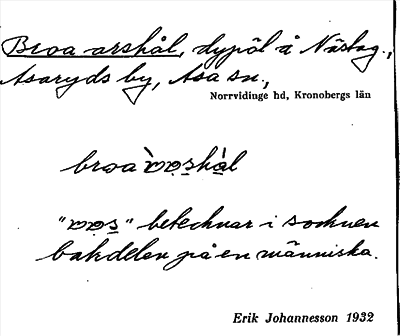 Broa arshål, dypöl å Nästag.,
Asaryds by, Asa sn.,
Norrvidinge hd, Kronobergs län
broa
"ɒɒs" betecknar i socknen
bakdelen på en människa.
Erik Johannesson 1932